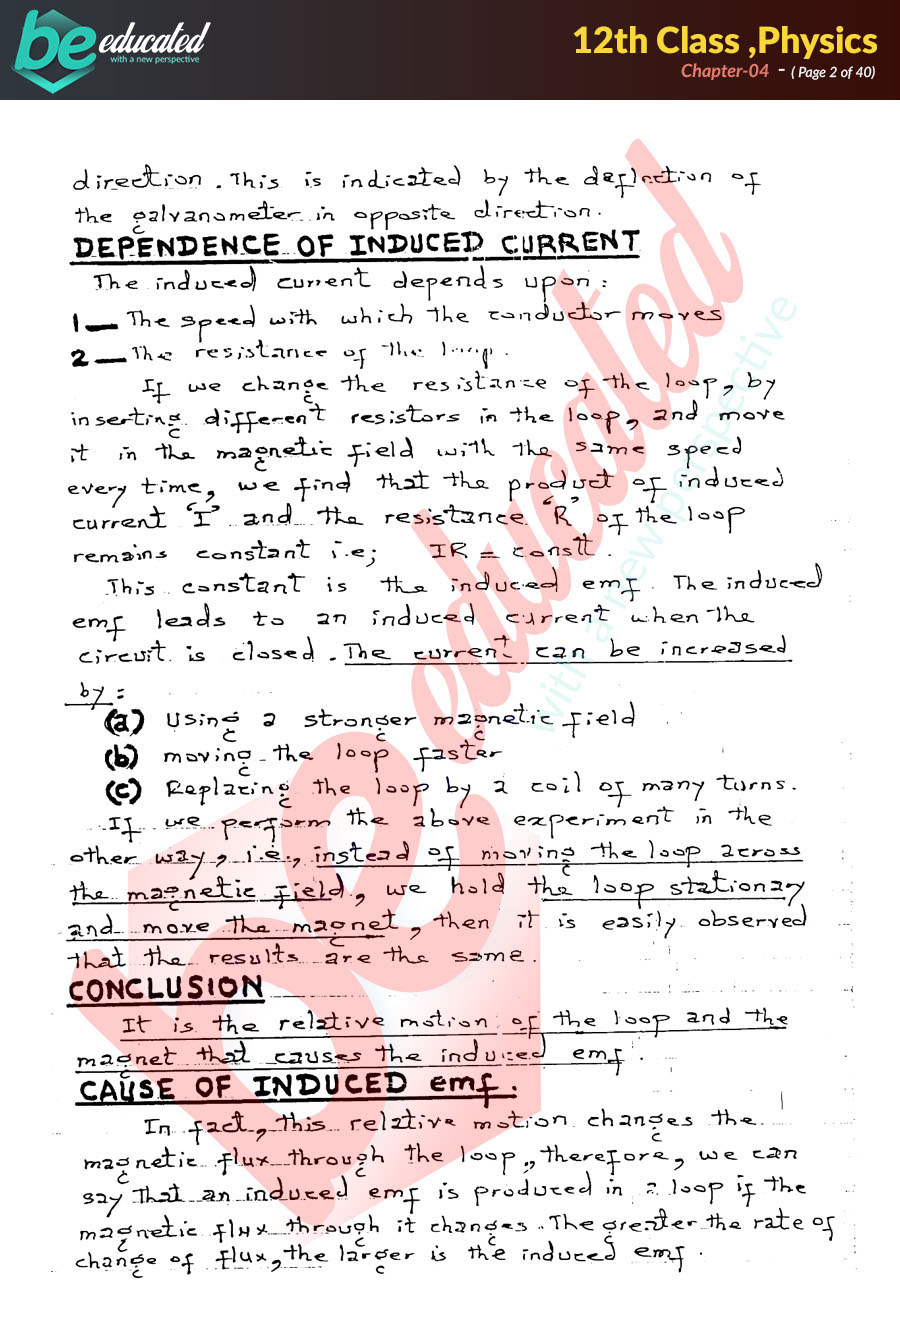 be educated
with a new perspective
12th Class ,Physics
Chapter-04 - ( Page 2 of 40)
direction. This is indicated by the deflection of
the galvanometer in opposite direction.
DEPENDENCE OF INDUCED CURRENT
The induced current depends upon:
1— The speed with which the conductor moves
2— The resistance of the loop.
If we change the resistance of the loop, by
inserting different resistors in the loop, and move
it in the magnetic field with the same speed
every time, we find that the product of induced
current 'I' and the resistance 'R' of the loop
remains constant i.e; IR = constt.
This constant is the induced emf. The induced
emf leads to an induced current when the
circuit is closed. The current can be increased
by:
(a) Using a stronger magnetic field
(b) moving the loop faster
(c) Replacing the loop by a coil of many turns.
If we perform the above experiment in the
other way, i.e., instead of moving the loop across
the magnetic field, we hold the loop stationary
and move the magnet, then it is easily observed
that the results are the same.
CONCLUSION
It is the relative motion of the loop and the
magnet that causes the induced emf.
CAUSE OF INDUCED emf.
In fact, this relative motion changes the
magnetic flux through the loop, therefore, we can
say that an induced emf is produced in a loop if the
magnetic flux through it changes. The greater the rate of
change of flux, the larger is the induced emf.
be educated
with a new perspective